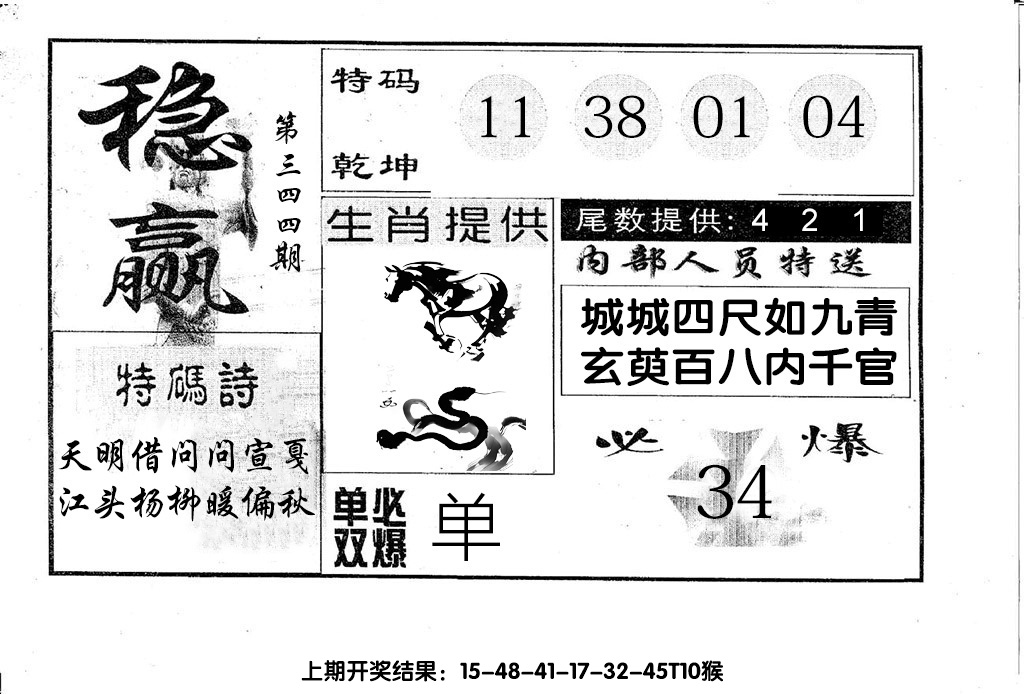 稳赢
第三四四期
特码
乾坤
11 38 01 04
生肖提供
尾数提供: 4 2 1
内部人员特送
城城四尺如九青
玄萸百八内千官
特碼詩
天明借问问宣戛
江头杨柳暖偏秋
必爆
34
单双必爆
单
上期开奖结果：15-48-41-17-32-45T10猴